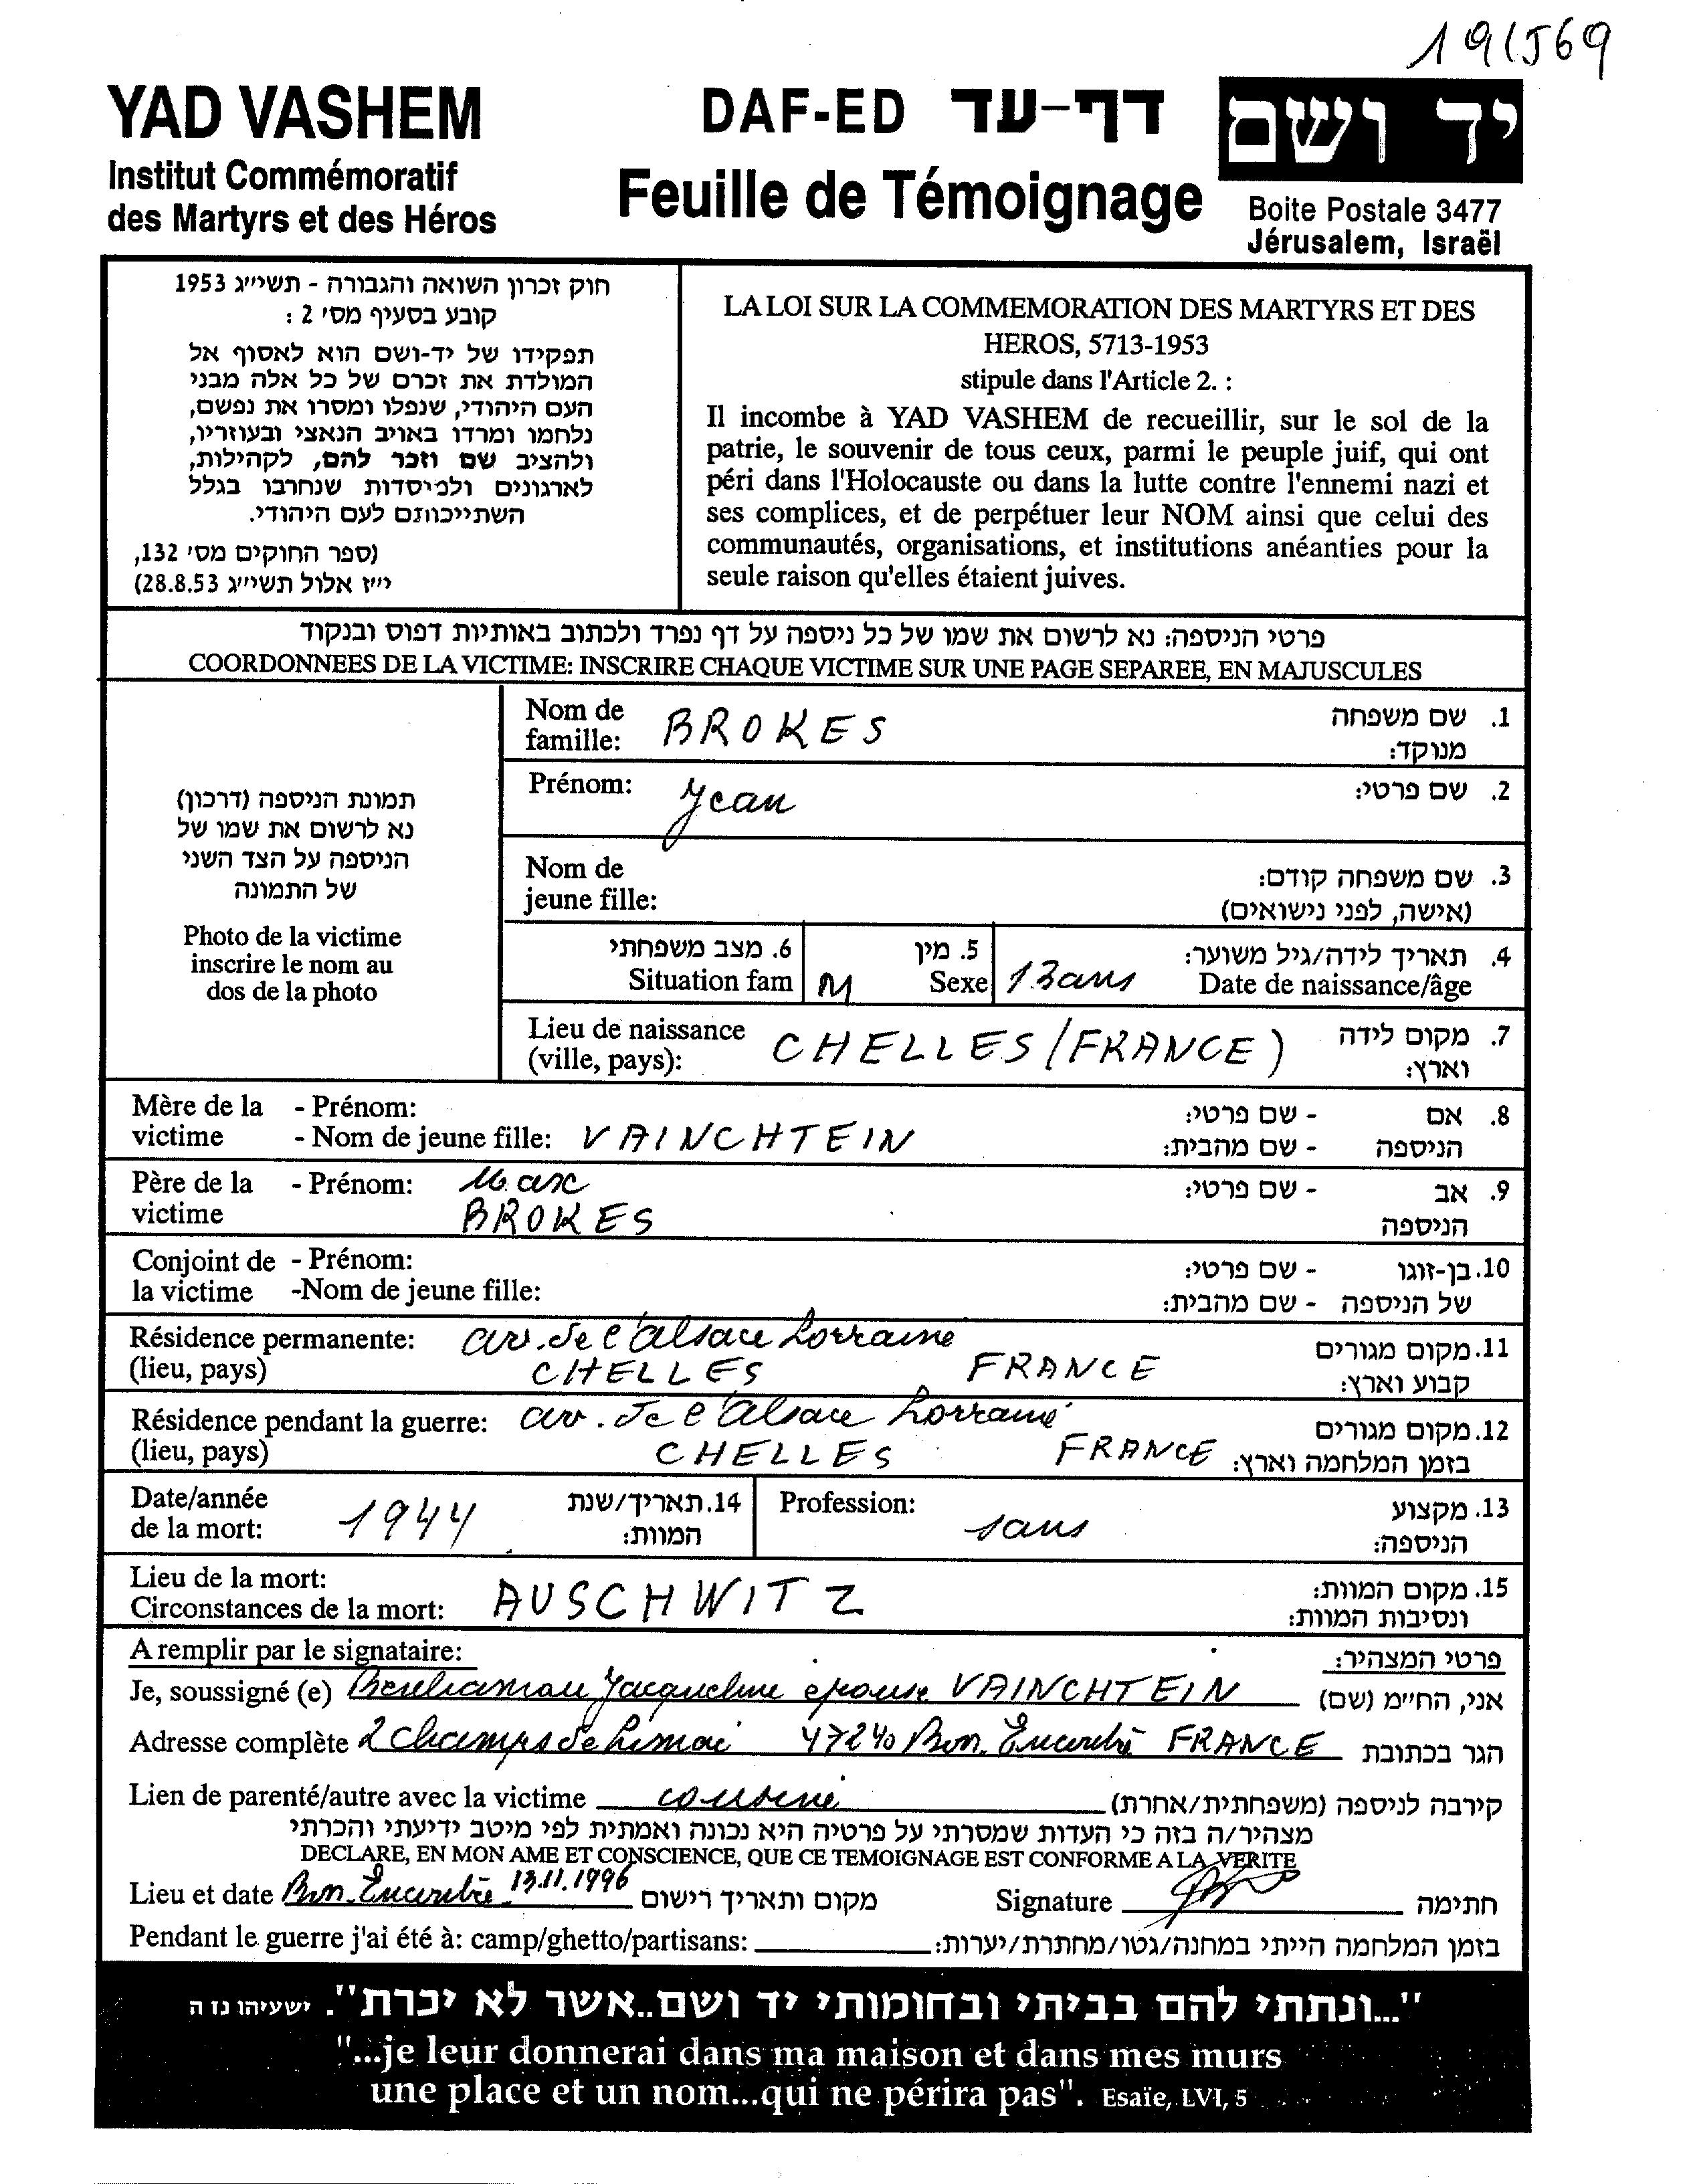 191569
YAD VASHEM
Institut Commémoratif
des Martyrs et des Héros
DAF-ED דף-עד
Feuille de Témoignage
יד ושם
Boite Postale 3477
Jérusalem, Israël
חוק זכרון השואה והגבורה - תשי״ג 1953
קובע בסעיף מס׳ 2 :
תפקידו של יד-ושם הוא לאסוף אל
המולדת את זכרם של כל אלה מבני
העם היהודי, שנפלו ומסרו את נפשם,
נלחמו ומרדו באויב הנאצי ובעוזריו,
ולהציב שם וזכר להם, לקהילות,
לארגונים ולמיסדות שנחרבו בגלל
השתייכותם לעם היהודי.
(ספר החוקים מס׳ 132,
י״ז אלול תשי״ג 28.8.53)
LA LOI SUR LA COMMEMORATION DES MARTYRS ET DES
HEROS, 5713-1953
stipule dans l'Article 2. :
Il incombe à YAD VASHEM de recueillir, sur le sol de la
patrie, le souvenir de tous ceux, parmi le peuple juif, qui ont
péri dans l'Holocauste ou dans la lutte contre l'ennemi nazi et
ses complices, et de perpétuer leur NOM ainsi que celui des
communautés, organisations, et institutions anéanties pour la
seule raison qu'elles étaient juives.
פרטי הניספה: נא לרשום את שמו של כל ניספה על דף נפרד ולכתוב באותיות דפוס ובנקוד
COORDONNEES DE LA VICTIME: INSCRIRE CHAQUE VICTIME SUR UNE PAGE SEPAREE, EN MAJUSCULES
תמונת הניספה (דרכון)
נא לרשום את שמו של
הניספה על הצד השני
של התמונה
Photo de la victime
inscrire le nom au
dos de la photo
Nom de famille: BROKES 1. שם משפחה מנוקד:
Prénom: Jean 2. שם פרטי:
Nom de jeune fille: 3. שם משפחה קודם:
(אישה, לפני נישואים)
6. מצב משפחתי 5. מין 4. תאריך לידה/גיל משוער:
Situation fam M Sexe 13 ans Date de naissance/âge
Lieu de naissance (ville, pays): CHELLES (FRANCE) 7. מקום לידה וארץ:
Mère de la - Prénom: - שם פרטי: 8. אם
victime - Nom de jeune fille: VAINCHTEIN - שם מהבית: הניספה
Père de la - Prénom: Marc - שם פרטי: 9. אב
victime BROKES הניספה
Conjoint de - Prénom: - שם פרטי: 10. בן-זוגו
la victime -Nom de jeune fille: - שם מהבית: של הניספה
Résidence permanente: av. de l'alsace Lorraine 11. מקום מגורים
(lieu, pays) CHELLES FRANCE קבוע וארץ:
Résidence pendant la guerre: av. de l'alsace Lorraine 12. מקום מגורים
(lieu, pays) CHELLES FRANCE בזמן המלחמה וארץ:
Date/année 14. תאריך/שנת Profession: 13. מקצוע
de la mort: 1944 המוות: sans הניספה:
Lieu de la mort: 15. מקום המוות:
Circonstances de la mort: AUSCHWITZ ונסיבות המוות:
A remplir par le signataire: פרטי המצהיר:
Je, soussigné (e) Jacqueline epouse VAINCHTEIN אני, החי״מ (שם)
Adresse complète 2 champs de 47240 Bon. Encontre FRANCE הגר בכתובת
Lien de parenté/autre avec la victime cousine קירבה לניספה (משפחתית/אחרת)
מצהיר/ה בזה כי העדות שמסרתי על פרטיה היא נכונה ואמתית לפי מיטב ידיעתי והכרתי
DECLARE, EN MON AME ET CONSCIENCE, QUE CE TEMOIGNAGE EST CONFORME A LA VERITE
Lieu et date Bon. Encontre 13.11.1996 מקום ותאריך רישום Signature חתימה
Pendant le guerre j'ai été à: camp/ghetto/partisans: בזמן המלחמה הייתי במחנה/גטו/מחתרת/יערות:
"...ונתתי להם בביתי ובחומותי יד ושם..אשר לא יכרת". ישעיהו נז ה
"...je leur donnerai dans ma maison et dans mes murs
une place et un nom...qui ne périra pas". Esaïe, LVI, 5